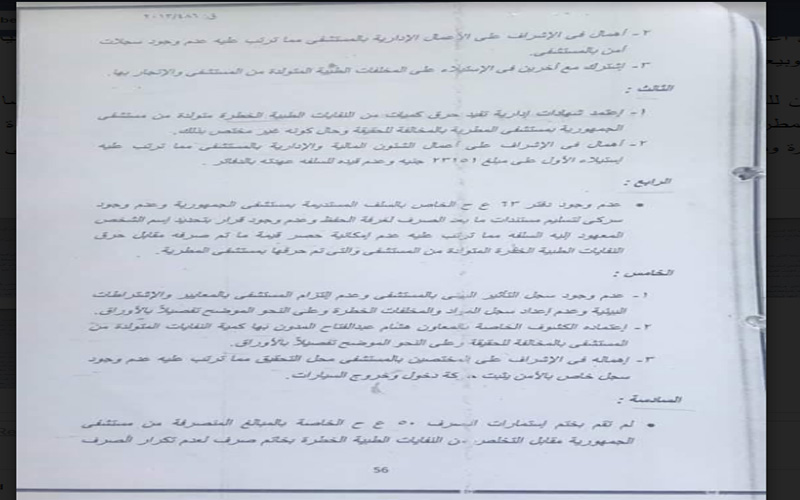 ق: ٢٠١٣/٤٨٦
٢- أهمال فى الإشراف على الأعمال الإدارية بالمستشفى مما ترتب عليه عدم وجود سجلات
أمن بالمستشفى.
٣- إشترك مع آخرين فى الإستيلاء على المخلفات الطبية المتولدة من المستشفى والإتجار بها.
الثالث :
١- إعتمد شهادات إدارية تفيد حرق كميات من النفايات الطبية الخطرة متولدة من مستشفى
الجمهورية بمستشفى المطرية بالمخالفة للحقيقة وحال كونه غير مختص بذلك.
٢- أهمال فى الإشراف على أعمال الشئون المالية والإدارية بالمستشفى مما ترتب عليه
إستيلاء الأول على مبلغ ٢٣١٥١ جنيه وعدم قيده للسلفه عهدته بالدفاتر .
الرابع :
• عدم وجود دفتر ٦٣ ع ح الخاص بالسلف المستديمة بمستشفى الجمهورية وعدم وجود
سركى لتسليم مستندات ما بعد الصرف لغرفة الحفظ وعدم وجود قرار بتحديد إسم الشخص
المعهود إليه السلفه مما ترتب عليه عدم إمكانية حصر قيمة ما تم صرفه مقابل حرق
النفايات الطبية الخطرة المتولدة من المستشفى والتى تم حرقها بمستشفى المطرية.
الخامس :
١- عدم وجود سجل التأثير البيئى بالمستشفى وعدم إلتزام المستشفى بالمعايير والإشتراطات
البيئية وعدم إعداد سجل المواد والمخلفات الخطرة وعلى النحو الموضح تفصيلاً بالأوراق.
٢- إعتماده الكشوف الخاصة بالمعاون هشام عبدالفتاح المدون بها كمية النفايات المتولدة من
المستشفى بالمخالفة للحقيقة وعلى النحو الموضح تفصيلاً بالأوراق.
٣- إهماله فى الإشراف على المختصين بالمستشفى محل التحقيق مما ترتب عليه عدم وجود
سجل خاص بالأمن يثبت حركة دخول وخروج السيارات.
السادسة :
• لم تقم بختم إستمارات الصرف ٥٠ ع ح الخاصة بالمبالغ المنصرفة من مستشفى
الجمهورية مقابل التخلص من النفايات الطبية الخطرة بخاتم صرف لعدم تكرار الصرف
56